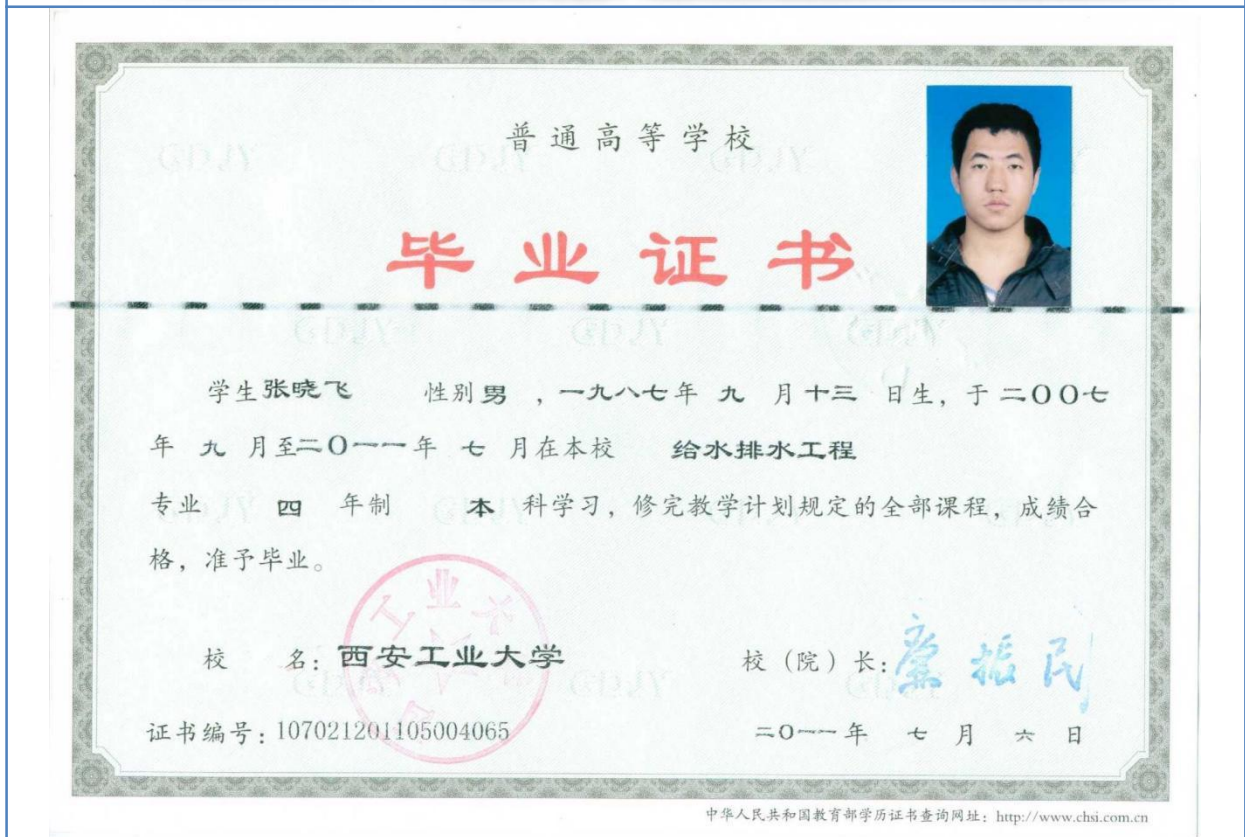 普通高等学校
毕业证书
学生张晓飞 性别男，一九八七年九月十三日生，于二〇〇七
年九月至二〇一一年七月在本校 给水排水工程
专业 四 年制 本 科学习，修完教学计划规定的全部课程，成绩合
格，准予毕业。
校 名：西安工业大学 校（院）长：
证书编号：107021201105004065 二〇一一年 七 月 六 日
中华人民共和国教育部学历证书查询网址：http://www.chsi.com.cn